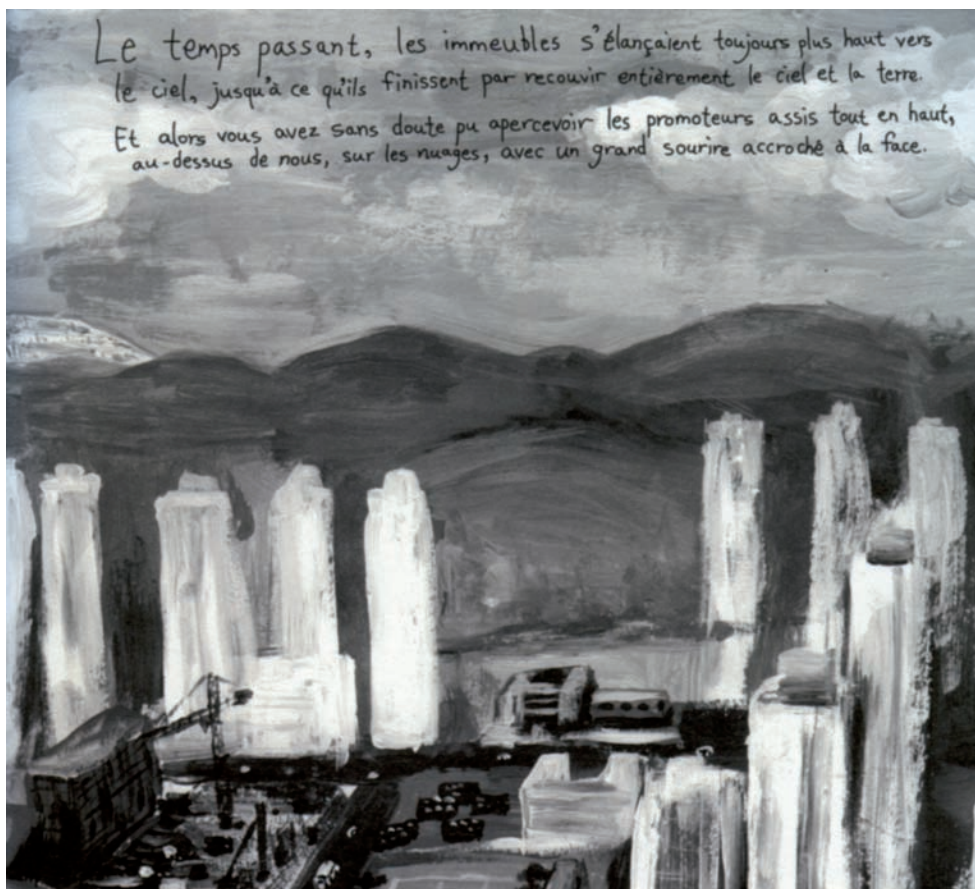 Le temps passant, les immeubles s'élançaient toujours plus haut vers
le ciel, jusqu'à ce qu'ils finissent par recouvir entièrement le ciel et la terre.
Et alors vous avez sans doute pu apercevoir les promoteurs assis tout en haut,
au-dessus de nous, sur les nuages, avec un grand sourire accroché à la face.